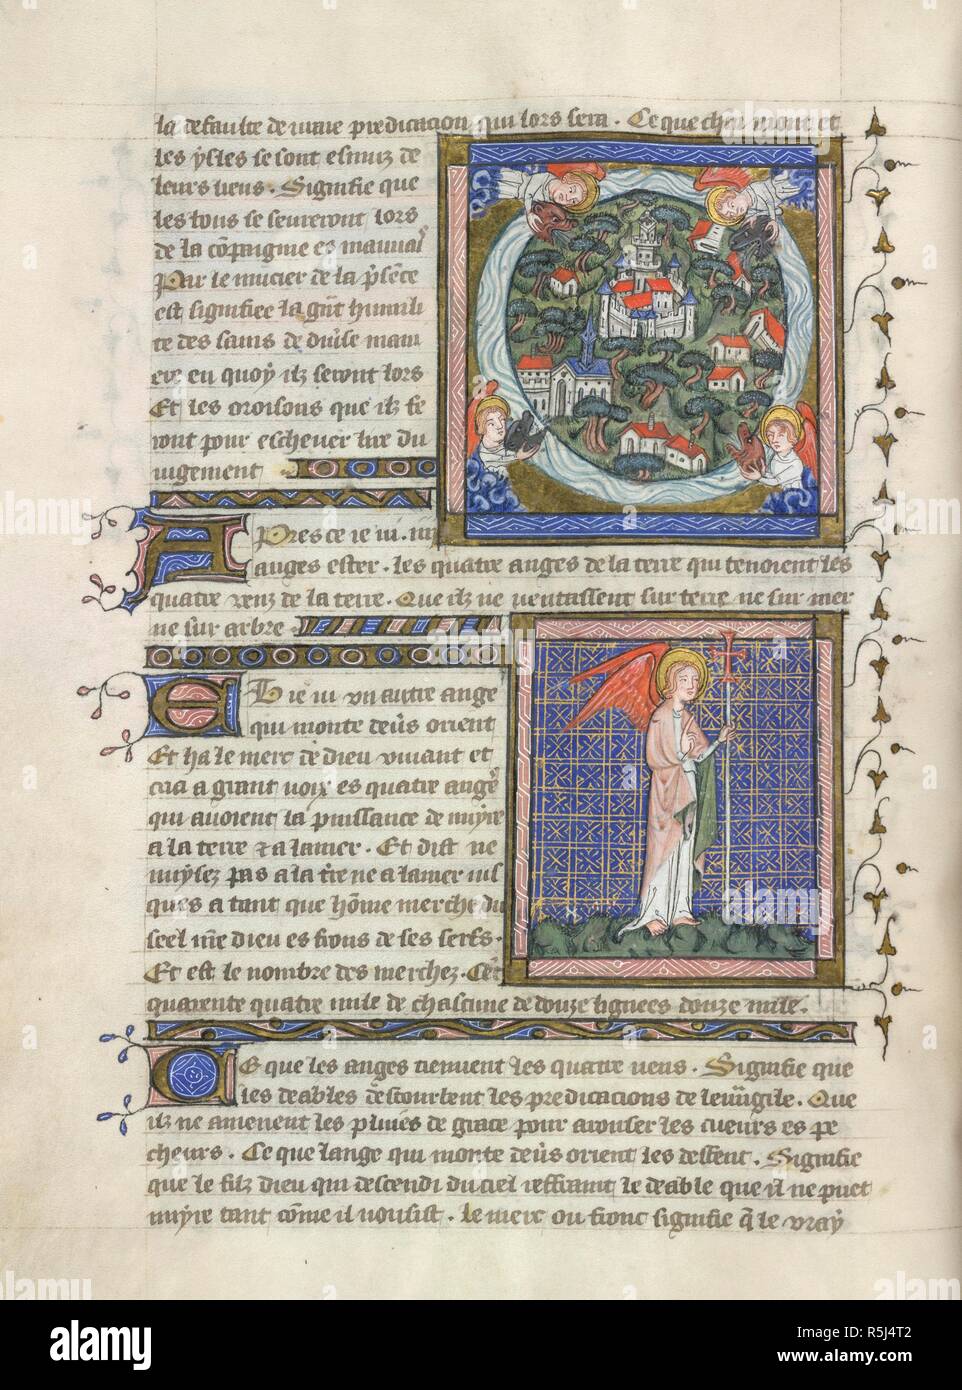 la defaulte de vraie predicacion qui lors sera. Ce que chūn mont et
les ysles se sont esmuz de
leurs lieus. Signifie que
les bons se seureront lors
de la cōpaignie es mauuaī
Par le mucier de la p̄sēce
est signifiee la grāt humili
te des sains de diūse mani
ere en quoy ilz seront lors
Et les oroisons que ilz fe
ront pour escheuer lire du
iugement
Apres ce ie vi . iiij
anges ester. les quatre anges de la terre qui tenoient les
quatre venz de la terre. Que ilz ne ventassent sur terre ne sur mer
ne sur arbre
Et ie vi vn autre ange
qui monte deūs orient
Et ha le merc de dieu viuant et
cria a grant voix es quatre angēs
qui auoient la puissance de nuyre
a la terre & a la mer. Et dist ne
nuysez pas a la t̄re ne a la mer ius
ques a tant que hōme merche du
seel n̄re dieu es frons de ses serfs.
Et est le nombre des merchez. Cēt
quarente quatre mile de chascune de douze lignees douze mile.
Ce que les anges tiennent les quatre vens. Signifie que
les deables destourbent les predicacions de leuūgile. Que
ilz ne amenent les pluies de grace pour arouser les cueurs es pe
cheurs. Ce que lange qui monte deūs orient les deffent. Signifie
que le filz dieu qui descendi du ciel reffraint le deable que il ne puet
nuyre tant cōme il vousist. le merc ou fronc signifie q̄ le vray
alamy
Image ID: R5J4T2
www.alamy.com